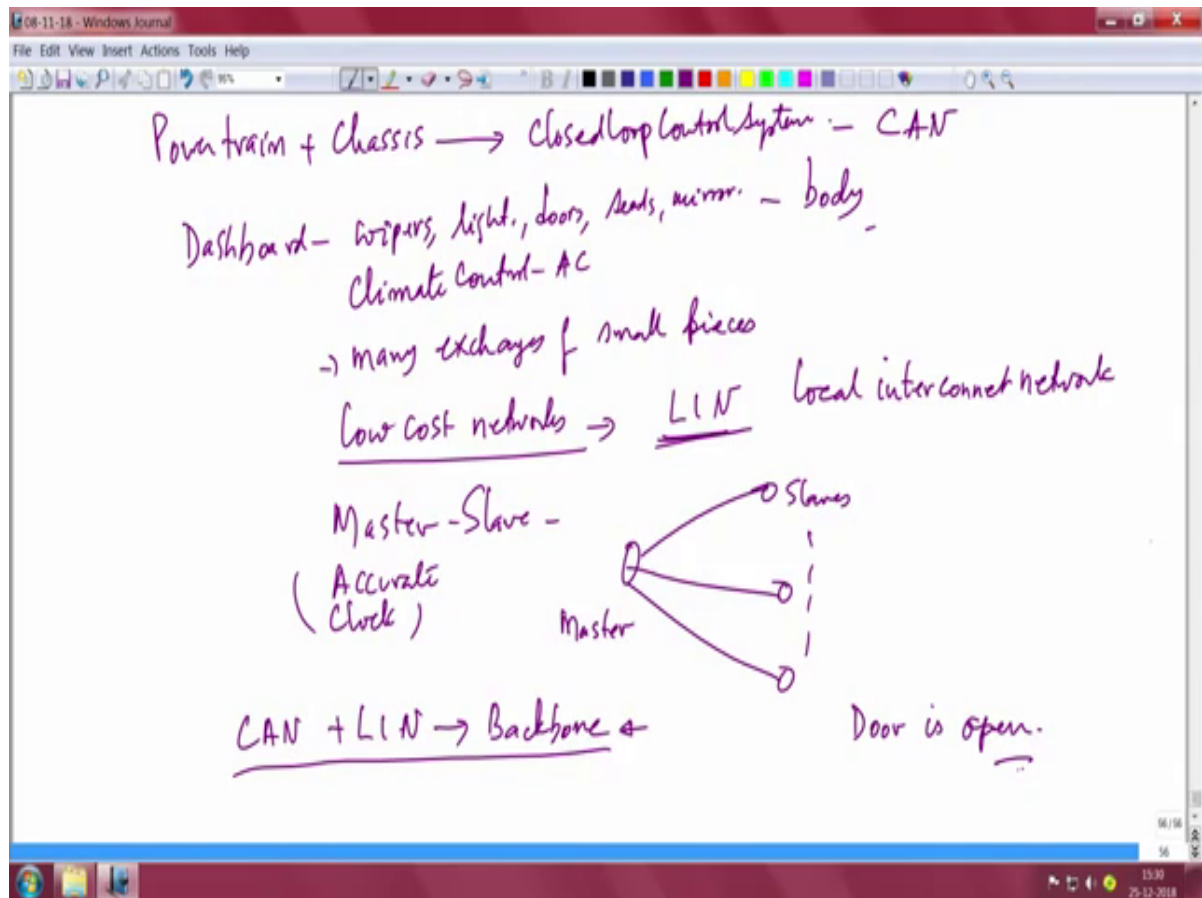 08-11-18 - Windows Journal
File Edit View Insert Actions Tools Help
Powertrain + Chassis → Closed loop Control System. - CAN
Dashboard - wipers, light., doors, seats, mirror. - body
Climate Control - AC
→ many exchages of small pieces
Low cost networks → LIN Local interconnet network
Master - Slave -
Slaves
( Accurate
Clock )
Master
CAN + LIN → Backbone
Door is open.
56 / 56
56
15:30
25-12-2018